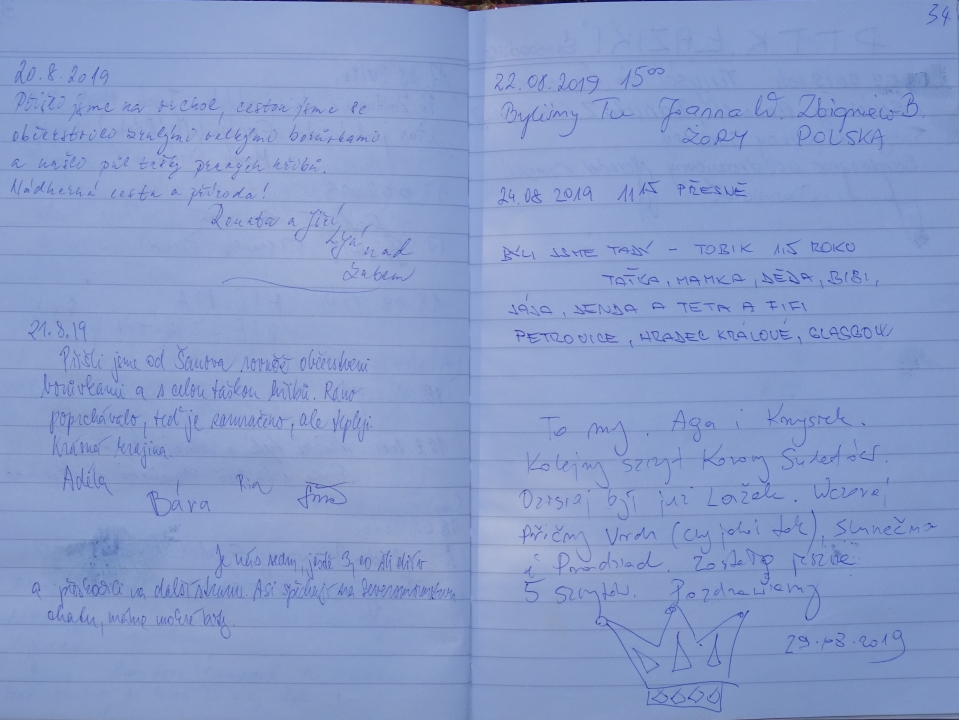 20.8.2019
Přišli jsme na vrchol, cestou jsme se
občerstvili zralými velkými borůvkami
a našli půl tašky pravých hřibů.
Nádherná cesta a příroda!
Renata a Jiří
Lysá nad
Labem
21.8.19
Přišli jsme od Šanova rovněž občerstveni
borůvkami a s celou taškou hřibů. Ráno
poprchávalo, teď je zamračeno, ale tepleji.
Krásná krajina.
Adéla
Bára
Ria
Je nás sedm, ještě 3, co šli dříve
a na další stranu. Asi spěchají na
chatu, máme mokré boty.
34
22.08.2019 15⁰⁰
Byliśmy Tu Joanna W. Zbigniew B.
ŻORY POLSKA
24.08 2019 11 15 PŘESNĚ
BYLI JSME TADY - TOBIK 1,5 ROKU
TAŤKA, MAMKA, DĚDA, BIBI,
JÁJA, JENDA A TETA A FIFI
PETROVICE, HRADEC KRÁLOVÉ, GLASGOW
To my. Aga i Krzysiek.
Kolejny szczyt Korony Sudetów.
Dzisiaj był już Lažek. Wczoraj
Příčný Vrch (czy jakoś tak), Slunečna
i Pradziad. Zostało jeszcze
5 szczytów. Pozdrawiamy
29.08.2019